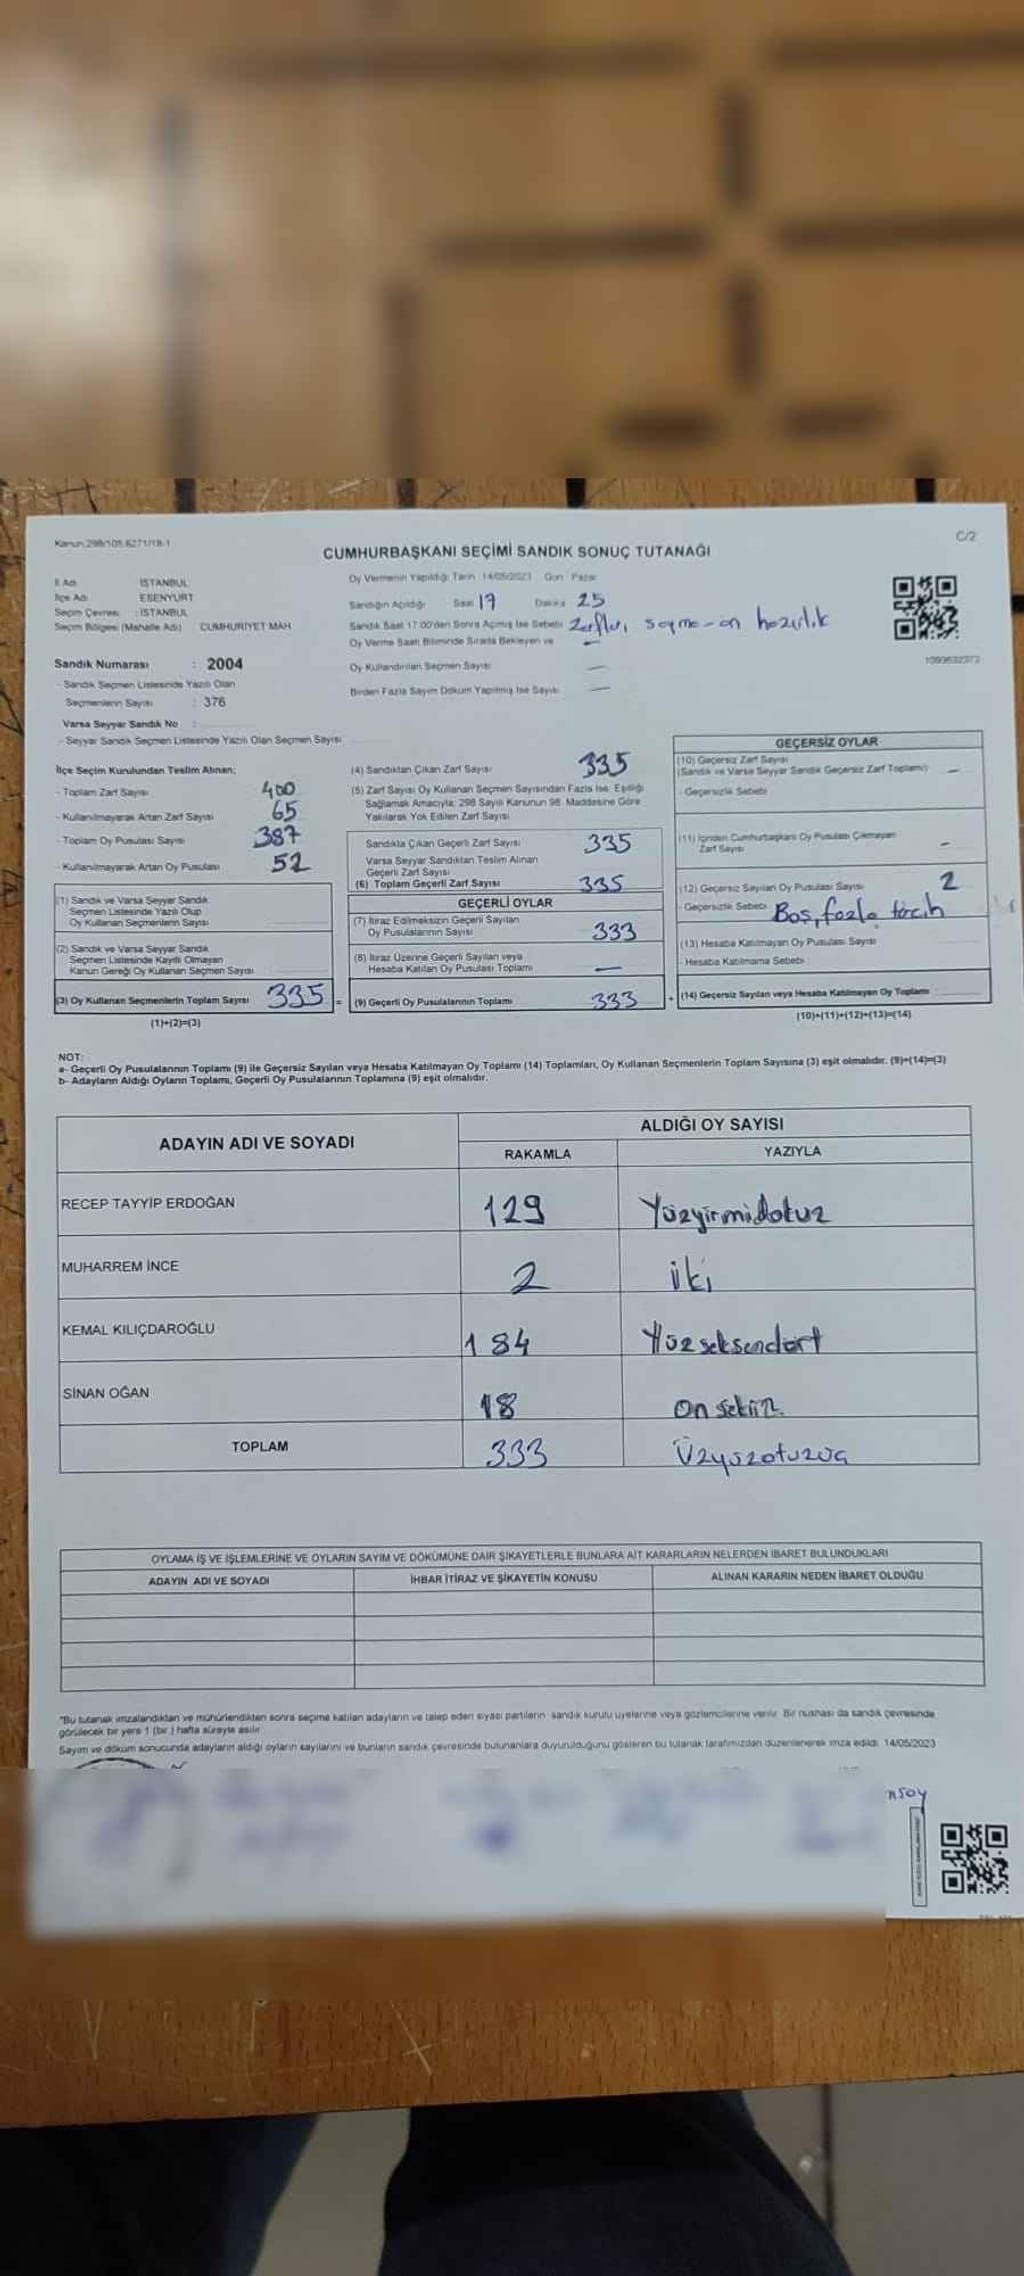 Kanun:298/105,6271/18-1
C/2
CUMHURBAŞKANI SEÇİMİ SANDIK SONUÇ TUTANAĞI
İl Adı : İSTANBUL
İlçe Adı : ESENYURT
Seçim Çevresi : İSTANBUL
Seçim Bölgesi (Mahalle Adı) CUMHURİYET MAH
Oy Vermenin Yapıldığı Tarih 14/05/2023 Gün Pazar
Sandığın Açıldığı Saat 17 Dakika 25
Sandık Saat 17.00'den Sonra Açılmış İse Sebebi Zarfları sayma-ön hazırlık
Oy Verme Saati Bitiminde Sırada Bekleyen ve
Oy Kullandırılan Seçmen Sayısı —
Birden Fazla Sayım Döküm Yapılmış İse Sayısı —
1093632373
Sandık Numarası : 2004
- Sandık Seçmen Listesinde Yazılı Olan
Seçmenlerin Sayısı : 376
Varsa Seyyar Sandık No :
- Seyyar Sandık Seçmen Listesinde Yazılı Olan Seçmen Sayısı
İlçe Seçim Kurulundan Teslim Alınan;
- Toplam Zarf Sayısı 400
- Kullanılmayarak Artan Zarf Sayısı 65
- Toplam Oy Pusulası Sayısı 387
- Kullanılmayarak Artan Oy Pusulası 52
(1) Sandık ve Varsa Seyyar Sandık
Seçmen Listesinde Yazılı Olup
Oy Kullanan Seçmenlerin Sayısı
(2) Sandık ve Varsa Seyyar Sandık
Seçmen Listesinde Kayıtlı Olmayan
Kanun Gereği Oy Kullanan Seçmen Sayısı
(3) Oy Kullanan Seçmenlerin Toplam Sayısı 335 =
(1)+(2)=(3)
(4) Sandıktan Çıkan Zarf Sayısı 335
(5) Zarf Sayısı Oy Kullanan Seçmen Sayısından Fazla İse; Eşitliği
Sağlamak Amacıyla, 298 Sayılı Kanunun 98. Maddesine Göre
Yakılarak Yok Edilen Zarf Sayısı
Sandıkta Çıkan Geçerli Zarf Sayısı 335
Varsa Seyyar Sandıktan Teslim Alınan
Geçerli Zarf Sayısı
(6) Toplam Geçerli Zarf Sayısı 335
GEÇERLİ OYLAR
(7) İtiraz Edilmeksizin Geçerli Sayılan
Oy Pusulalarının Sayısı 333
(8) İtiraz Üzerine Geçerli Sayılan veya
Hesaba Katılan Oy Pusulası Toplamı —
(9) Geçerli Oy Pusulalarının Toplamı 333 +
GEÇERSİZ OYLAR
(10) Geçersiz Zarf Sayısı
(Sandık ve Varsa Seyyar Sandık Geçersiz Zarf Toplamı) —
- Geçersizlik Sebebi
(11) İçinden Cumhurbaşkanı Oy Pusulası Çıkmayan
Zarf Sayısı -
(12) Geçersiz Sayılan Oy Pusulası Sayısı 2
- Geçersizlik Sebebi Boş, fazla tercih
(13) Hesaba Katılmayan Oy Pusulası Sayısı
- Hesaba Katılmama Sebebi
(14) Geçersiz Sayılan veya Hesaba Katılmayan Oy Toplamı
(10)+(11)+(12)+(13)=(14)
NOT:
a- Geçerli Oy Pusulalarının Toplamı (9) ile Geçersiz Sayılan veya Hesaba Katılmayan Oy Toplamı (14) Toplamları, Oy Kullanan Seçmenlerin Toplam Sayısına (3) eşit olmalıdır. (9)+(14)=(3)
b- Adayların Aldığı Oyların Toplamı, Geçerli Oy Pusulalarının Toplamına (9) eşit olmalıdır.
ADAYIN ADI VE SOYADI
ALDIĞI OY SAYISI
RAKAMLA YAZIYLA
RECEP TAYYİP ERDOĞAN 129 Yüzyirmidokuz
MUHARREM İNCE 2 iki
KEMAL KILIÇDAROĞLU 184 Yüzseksendört
SİNAN OĞAN 18 On sekiz
TOPLAM 333 Üzyüzotuzüç
OYLAMA İŞ VE İŞLEMLERİNE VE OYLARIN SAYIM VE DÖKÜMÜNE DAİR ŞİKAYETLERLE BUNLARA AİT KARARLARIN NELERDEN İBARET BULUNDUKLARI
ADAYIN ADI VE SOYADI İHBAR İTİRAZ VE ŞİKAYETİN KONUSU ALINAN KARARIN NEDEN İBARET OLDUĞU
"Bu tutanak imzalandıktan ve mühürlendikten sonra seçime katılan adayların ve talep eden siyasi partilerin sandık kurulu üyelerine veya gözlemcilerine verilir. Bir nüshası da sandık çevresinde
görülecek bir yere 1 (bir ) hafta süreyle asılır.
Sayım ve döküm sonucunda adayların aldığı oyların sayılarını ve bunların sandık çevresinde bulunanlara duyurulduğunu gösteren bu tutanak tarafımızdan düzenlenerek imza edildi. 14/05/2023
nsoy